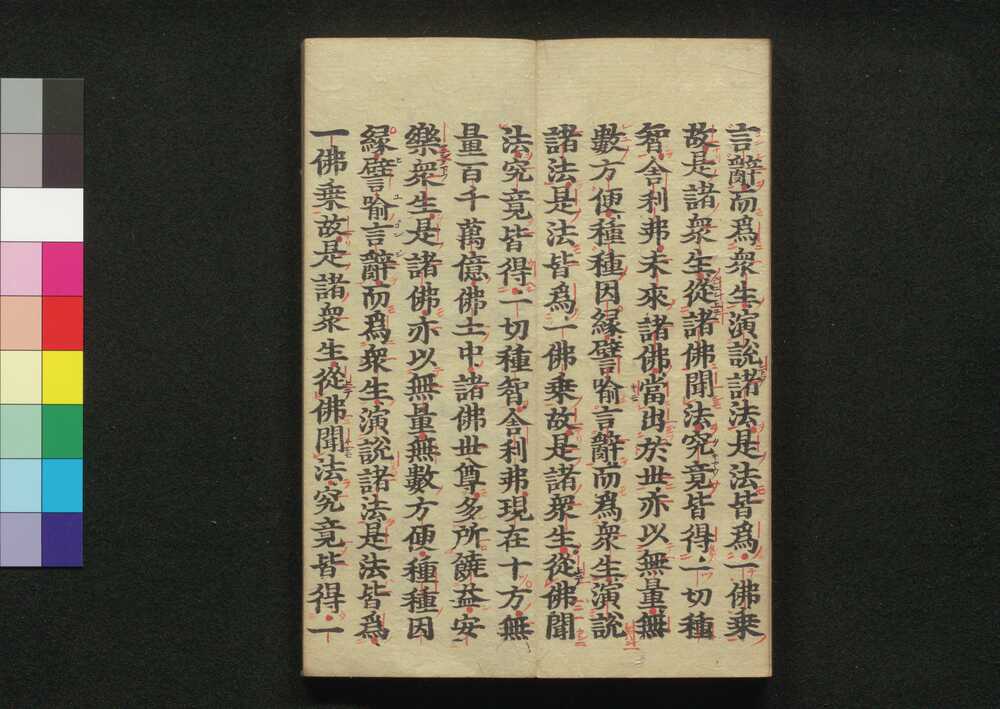 言辭而爲衆生演説諸法是法皆爲一佛乗
故是諸衆生從諸佛聞法究竟皆得一切種
智舎利弗未來諸佛當出於世亦以無量無
數方便種種因縁譬喩言辭而爲衆生演説
諸法是法皆爲一佛乗故是諸衆生從佛聞
法究竟皆得一切種智舎利弗現在十方無
量百千萬億佛土中諸佛世尊多所饒益安
樂衆生是諸佛亦以無量無數方便種種因
縁譬喩言辭而爲衆生演説諸法是法皆爲
一佛乗故是諸衆生從佛聞法究竟皆得一